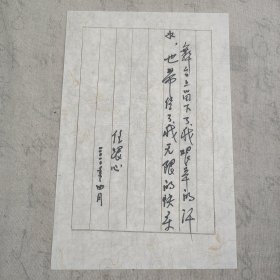 舞台上留下了我艰辛的汗
水，也带给了我无限的快乐
任
心
二〇〇〇年四月